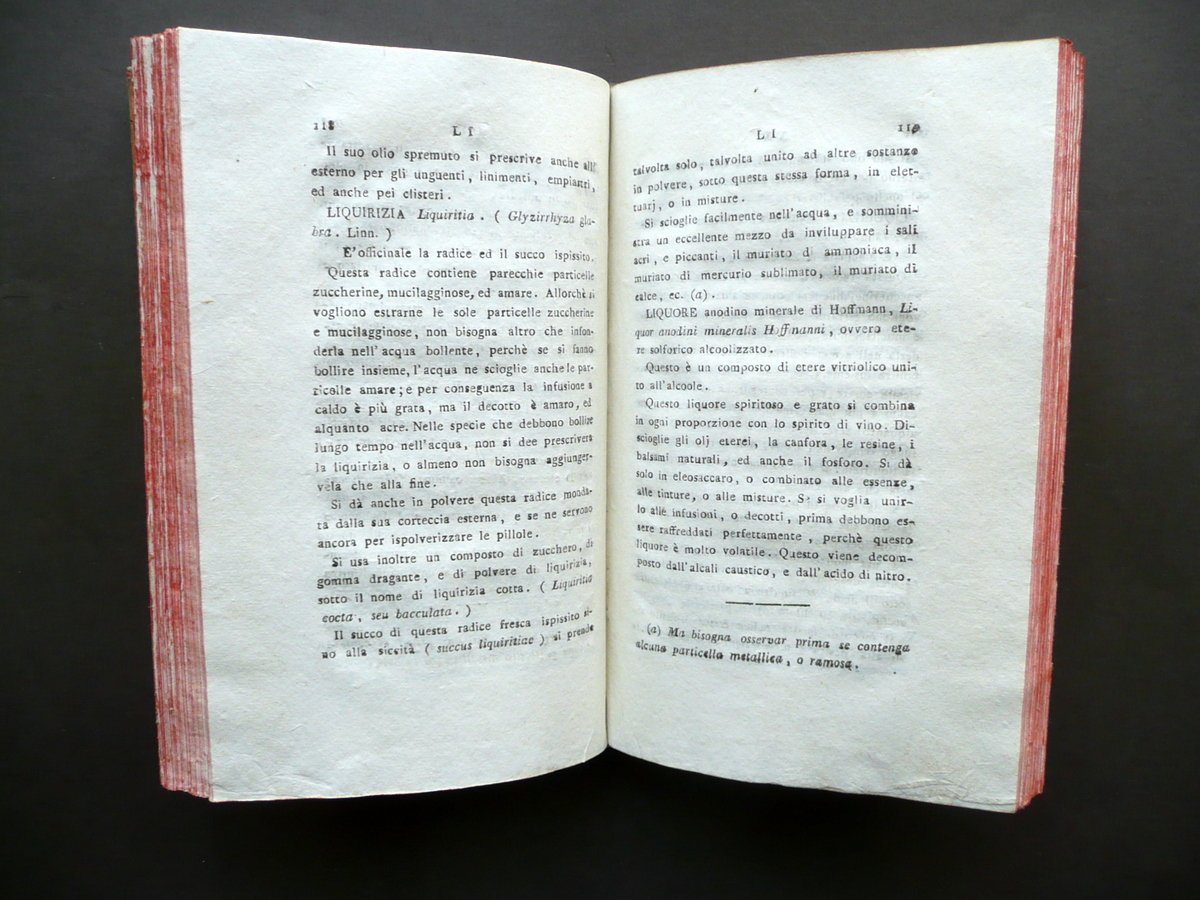 118
L I
Il suo olio spremuto si prescrive anche all'
esterno per gli unguenti, linimenti, empiastri,
ed anche pei clisteri.
LIQUIRIZIA Liquiritia. ( Glyzirrhyza gla-
bra. Linn. )
E' officinale la radice ed il succo ispissito.
Questa radice contiene parecchie particelle
zuccherine, mucilagginose, ed amare. Allorchè si
vogliono estrarne le sole particelle zuccherine
e mucilagginose, non bisogna altro che infon-
derla nell'acqua bollente, perchè se si fanno
bollire insieme, l'acqua ne scioglie anche le par-
ticelle amare; e per conseguenza la infusione a
caldo è più grata, ma il decotto è amaro, ed
alquanto acre. Nelle specie che debbono bollire
lungo tempo nell'acqua, non si dee prescrivere
la liquirizia, o almeno non bisogna aggiunger-
vela che alla fine.
Si dà anche in polvere questa radice monda-
ta dalla sua corteccia esterna, e se ne servono
ancora per ispolverizzare le pillole.
Si usa inoltre un composto di zucchero, di
gomma dragante, e di polvere di liquirizia,
sotto il nome di liquirizia cotta. ( Liquiritia
cocta, seu bacculata. )
Il succo di questa radice fresca ispissito si-
no alla siccità ( succus liquiritiae ) si prende
L I
119
talvolta solo, talvolta unito ad altre sostanze
in polvere, sotto questa stessa forma, in elet-
tuarj, o in misture.
Si scioglie facilmente nell'acqua, e sommini-
stra un eccellente mezzo da inviluppare i sali
acri, e piccanti, il muriato di ammoniaca, il
muriato di mercurio sublimato, il muriato di
calce, ec. (a).
LIQUORE anodino minerale di Hoffmann, Li-
quor anodini mineralis Hoffmanni, ovvero ete-
re solforico alcoolizzato.
Questo è un composto di etere vitriolico uni-
to all'alcoole.
Questo liquore spiritoso e grato si combina
in ogni proporzione con lo spirito di vino. Di-
scioglie gli olj eterei, la canfora, le resine, i
balsami naturali, ed anche il fosforo. Si dà
solo in eleosaccaro, o combinato alle essenze,
alle tinture, o alle misture. Se si voglia unir-
lo alle infusioni, o decotti, prima debbono es-
sere raffreddati perfettamente, perchè questo
liquore è molto volatile. Questo viene decom-
posto dall'alcali caustico, e dall'acido di nitro.
(a) Ma bisogna osservar prima se contenga
alcuna particella metallica, o ramosa.